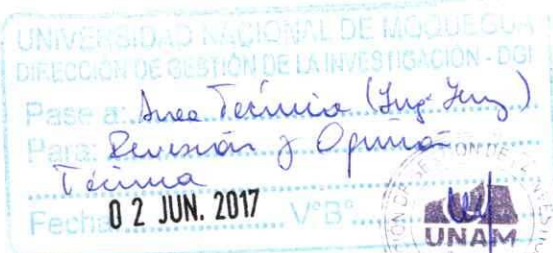 UNIVERSIDAD NACIONAL DE MOQUEGUA
DIRECCIÓN DE GESTIÓN DE LA INVESTIGACIÓN - DGI
Pase a: Area Técnica (Ing.
Para: Revisión y Opinión
Técnica
Fecha 02 JUN. 2017 V°B°
UNAM